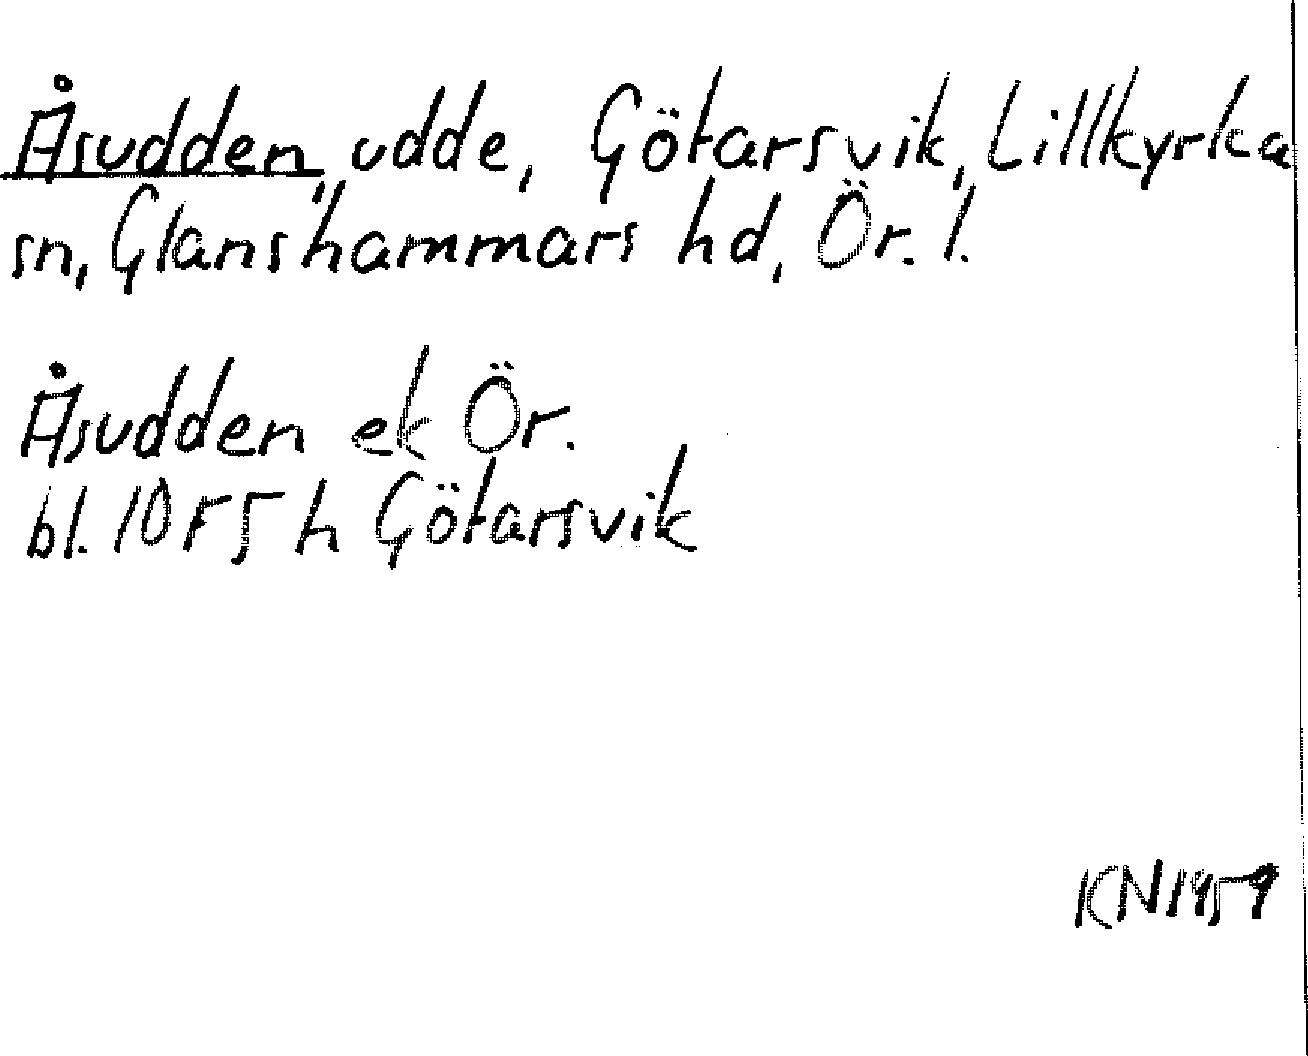 Åsudden, udde, Götarsvik, Lillkyrka
sn, Glanshammars hd, Ör. l.
Åsudden ek Ör.
bl. 10F5h Götarsvik
KN1959